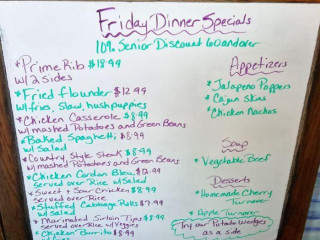 Friday Dinner Specials
10% Senior Discount 60 and over
*Prime Rib $18.99
w/2 sides
*Fried flounder $12.99
w/fries, Slaw, hushpuppies
*Chicken Casserole $8.99
w/mashed Potatoes and Green Beans
*Baked Spaghetti $8.99
w/Salad
*Country Style Steak $8.99
w/mashed Potatoes and Green Beans
*Chicken Cordon Bleu $12.99
served over Rice w/Salad
*Sweet & Sour Chicken $8.99
served over Rice
*Stuffed Cabbage Rolls $7.99
w/salad
*Marinated Sirloin Tips $8.99
served over Rice w/Veggies
*Chicken Burrito $8.99
Appetizers
*Jalapeno Poppers
*Cajun Skins
*Chicken Nachos
Soup
*Vegetable Beef
Desserts
*Homemade Cherry
Turnover
*Apple Turnover
Try our Potato Wedges
as a side